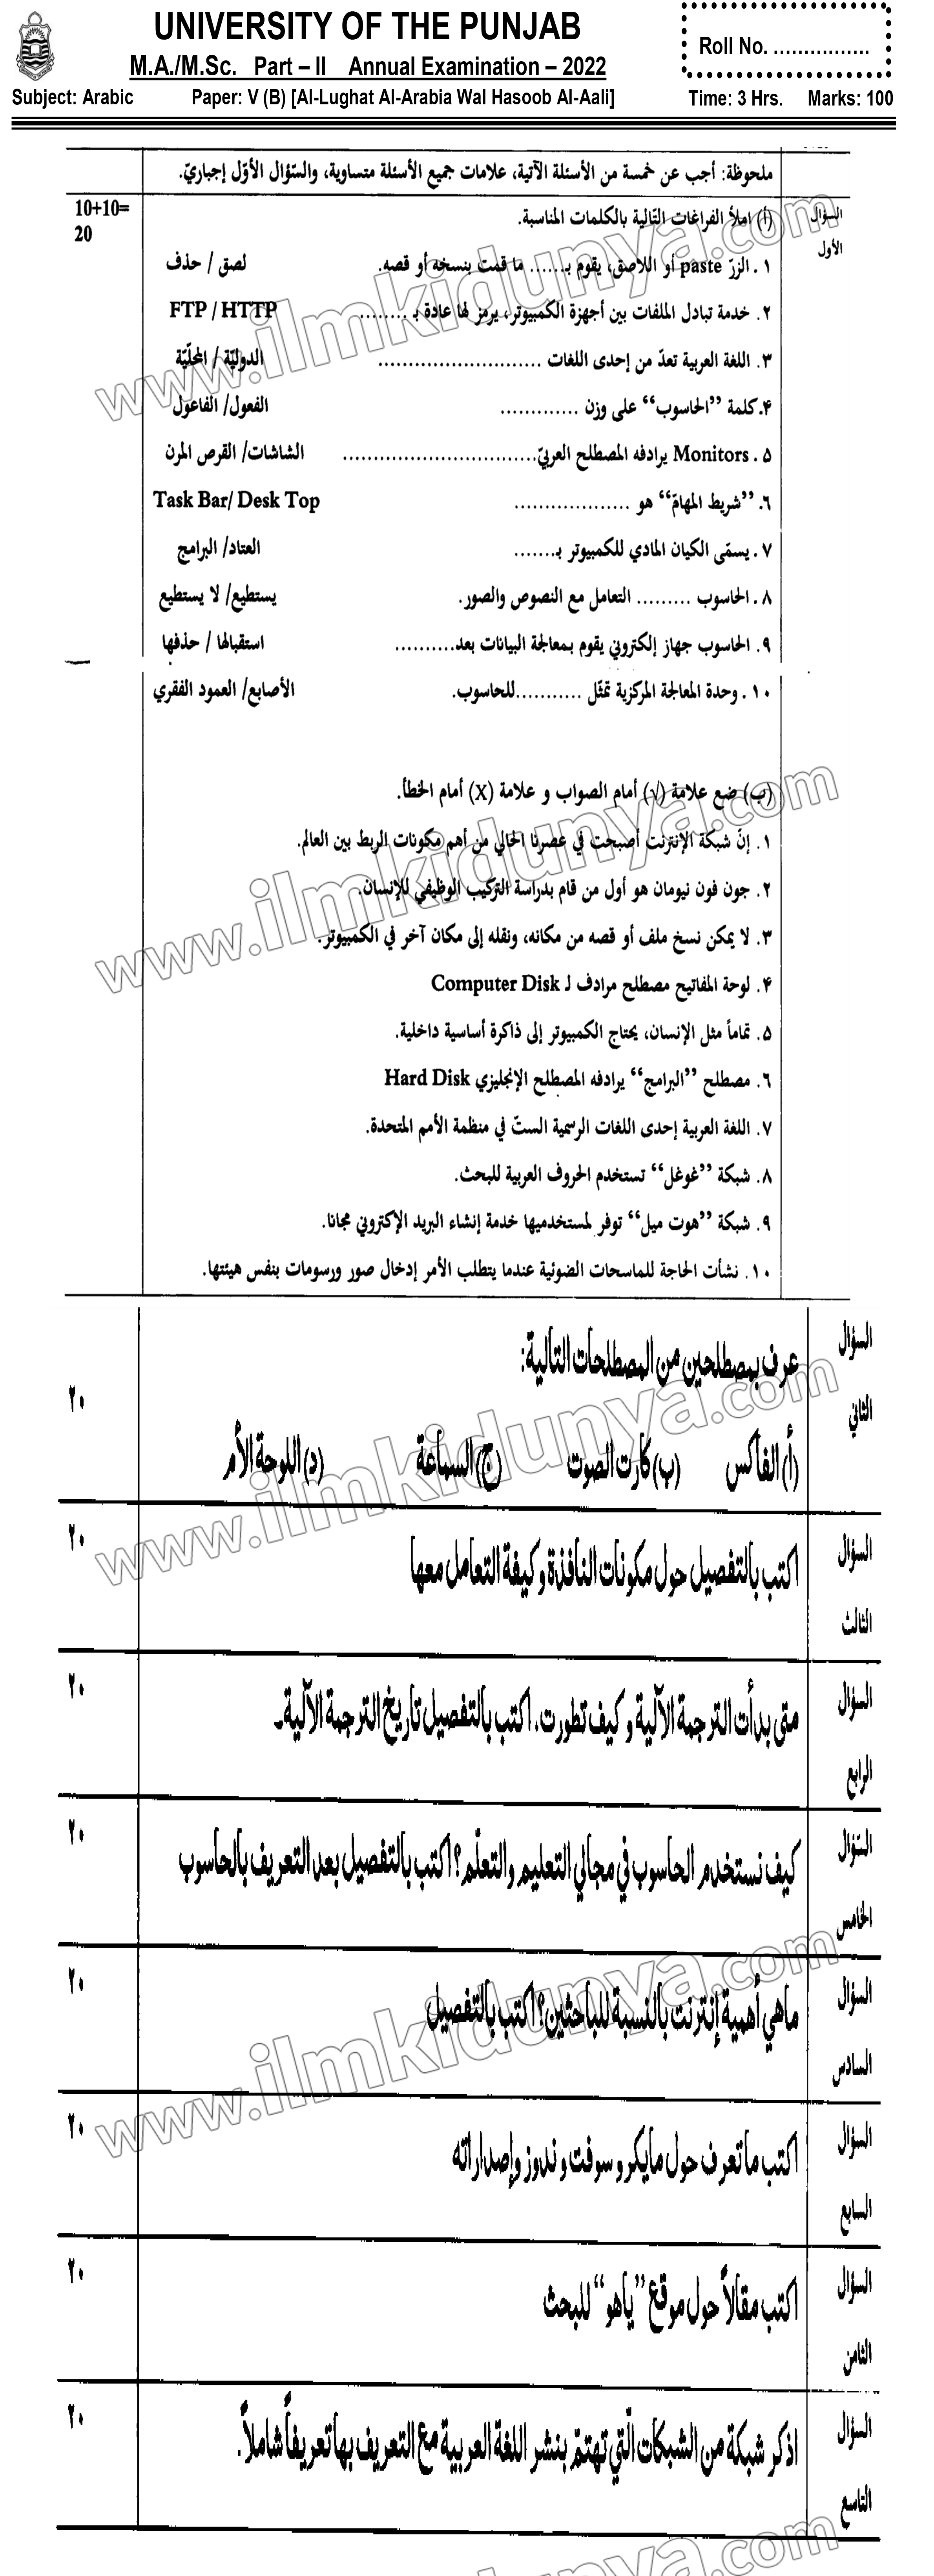 UNIVERSITY OF THE PUNJAB
M.A./M.Sc. Part – II Annual Examination – 2022
Roll No. ................
Subject: Arabic Paper: V (B) [Al-Lughat Al-Arabia Wal Hasoob Al-Aali] Time: 3 Hrs. Marks: 100
ملحوظة: أجب عن خمسة من الأسئلة الآتية، علامات جميع الأسئلة متساوية، والسّؤال الأوّل إجباريّ.
السؤال الأول
(أ) املأ الفراغات التّالية بالكلمات المناسبة.
10+10=
20
١. الزرّ paste أو اللاصق، يقوم بـ...... ما قمت بنسخه أو قصه. لصق / حذف
٢. خدمة تبادل الملفات بين أجهزة الكمبيوتر، يرمز لها عادة بـ ........ FTP / HTTP
٣. اللغة العربية تعدّ من إحدى اللغات ........................... الدوليّة / المحلّيّة
۴. كلمة “الحاسوب” على وزن ............. الفعول/ الفاعول
۵. Monitors يرادفه المصطلح العربيّ................................ الشاشات/ القرص المرن
٦. “شريط المهامّ” هو ................... Task Bar/ Desk Top
٧. يسمّى الكيان المادي للكمبيوتر بـ....... العتاد/ البرامج
٨. الحاسوب ......... التعامل مع النصوص والصور. يستطيع/ لا يستطيع
٩. الحاسوب جهاز إلكتروني يقوم بمعالجة البيانات بعد.......... استقبالها / حذفها
١٠. وحدة المعالجة المركزية تمثّل ...........للحاسوب. الأصابع/ العمود الفقري
(ب) ضع علامة (√) أمام الصواب و علامة (X) أمام الخطأ.
١. إنّ شبكة الإنترنت أصبحت في عصرنا الحالي من أهم مكونات الربط بين العالم.
٢. جون فون نيومان هو أول من قام بدراسة التركيب الوظيفي للإنسان.
٣. لا يمكن نسخ ملف أو قصه من مكانه، ونقله إلى مكان آخر في الكمبيوتر.
۴. لوحة المفاتيح مصطلح مرادف لـ Computer Disk
۵. تماماً مثل الإنسان، يحتاج الكمبيوتر إلى ذاكرة أساسية داخلية.
٦. مصطلح “البرامج” يرادفه المصطلح الإنجليزي Hard Disk
٧. اللغة العربية إحدى اللغات الرسمية الستّ في منظمة الأمم المتحدة.
٨. شبكة “غوغل” تستخدم الحروف العربية للبحث.
٩. شبكة “هوت ميل” توفر لمستخدميها خدمة إنشاء البريد الإكتروني مجانا.
١٠. نشأت الحاجة للماسحات الضوئية عندما يتطلب الأمر إدخال صور ورسومات بنفس هيئتها.
السؤال الثاني
عرف بمصطلحين من المصطلحات التالية:
٢٠
(أ) الفاكس (ب) كارت الصوت (ج) السماعة (د) اللوحة الأم
السؤال الثالث
اكتب بالتفصيل حول مكونات النافذة و كيفة التعامل معها
٢٠
السؤال الرابع
متى بدأت الترجمة الآلية و كيف تطورت. اكتب بالتفصيل تاريخ الترجمة الآلية۔
٢٠
السّؤال الخامس
كيف نستخدم الحاسوب في مجالي التعليم والتعلّم؟ اكتب بالتفصيل بعد التعريف بالحاسوب
٢٠
السؤال السادس
ماهي أهمية إنترنت بالنسبة للباحثين؟ اكتب بالتفصيل
٢٠
السؤال السابع
اكتب ما تعرف حول مايكروسوفت وندوز وإصداراته
٢٠
السؤال الثامن
اكتب مقالاً حول موقع “ياهو” للبحث
٢٠
السؤال التاسع
اذكر شبكة من الشبكات الّتي تهتمّ بنشر اللغة العربية مع التعريف بها تعريفاً شاملاً.
٢٠
www.ilmkidunya.com
www.ilmkidunya.com
www.ilmkidunya.com
www.ilmkidunya.com